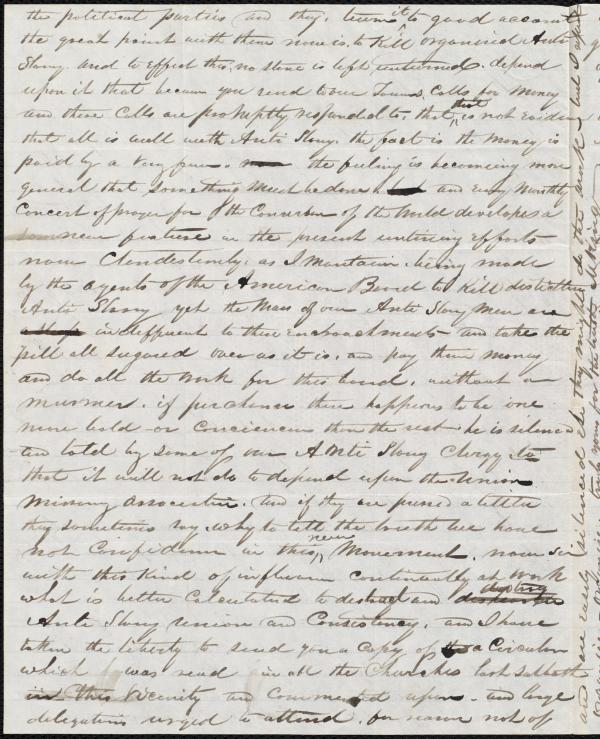 the political parties and they, turn it to good account
the great point with them now is, to Kill organised Anti
Slavy. and to effect this, no stone is left unturned. depend
upon it that because you send to our Towns, Calls for Money
and those Calls are promptly responded to, that that is not Evidence
that all is well with Anti Slavy. the fact is the Money is
paid by a very few. the feeling is becomeing more
general that Something Must be done and Every Monthly
Concert of prayer for the Conversion of the World developes a
new feature in the present untireing Efforts
now Clendestinely, as I Maintain, being made
by the agents of the American Board to Kill distinctive
Anti Slavy yet the Mass of our Anti Slavy Men are
indifferent to these Encroachments and take the
pill all sugared over as it is, and pay their money
and do all the work for this board, without a
murmer, if perchance there happens to be one
more bold or Conciencious than the rest he is silenced
and told by some of our Anti Slavy Clergy
that it will not do to depend upon the Union
Missiony Association, and if they are pressed a little
they sometimes say, why to tell the truth we have
not Confidence in this new Movement. now Sir
with this Kind of influence continually at work
what is better Calculated to distract and destroy
Anti Slavy union and Consistency, and I have
taken the liberty to send you a Copy of a Circular
which was read in all the Churches last Sabbath
in this vicinity and Commented upon and large
delegations urged to attend, for reasons not of
and are easily silenced else they might do the work